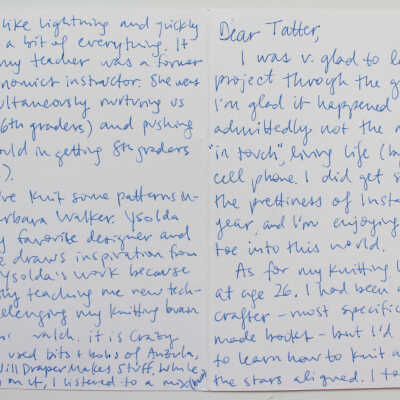 like lightning and quickly
a bit of everything. It
my teacher was a former
onomics instructor. She was
ultaneously nurturing us
6th graders) and pushing
ould in getting 8th graders
).
've knit some patterns in-
arbara Walker. Ysolda
y favorite designer and
e draws inspiration from
Ysolda's work because
ly teaching me new tech-
llenging my knitting brain
it is crazy
used bits + bobs of Ancula,
Will Draper Makes Stuff. While
on it, I listened to a
Dear Tatter,
I was v. glad to le
project through the g
I'm glad it happened
admittedly not the m
"in touch", living life (
cell phone. I did get s
the prettiness of Insta
year, and I'm enjoying
toe into this world.
As for my knitting l
at age 26. I had been a
crafter - most specific
made books - but I'd
to learn how to knit a
the stars aligned. I to